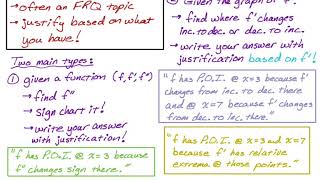 → often an FRQ topic
→ justify based on what
you have!
Two main types:
① given a function (f, f', f")
→ find f"
→ sign chart it!
→ write your answer
with justification!
"f has P.O.I. @ x=3 because
f" changes sign there."
② Given the graph of f'
→ find where f' changes
inc. to dec. or dec. to inc.
→ write your answer with
justification based on f'!
"f has P.O.I. @ x=3 because f'
changes from inc. to dec. there
and @ x=7 because f' changes
from dec. to inc. there."
"f has P.O.I. @ x=3 and x=7
because f' has relative
extrema @ those points."